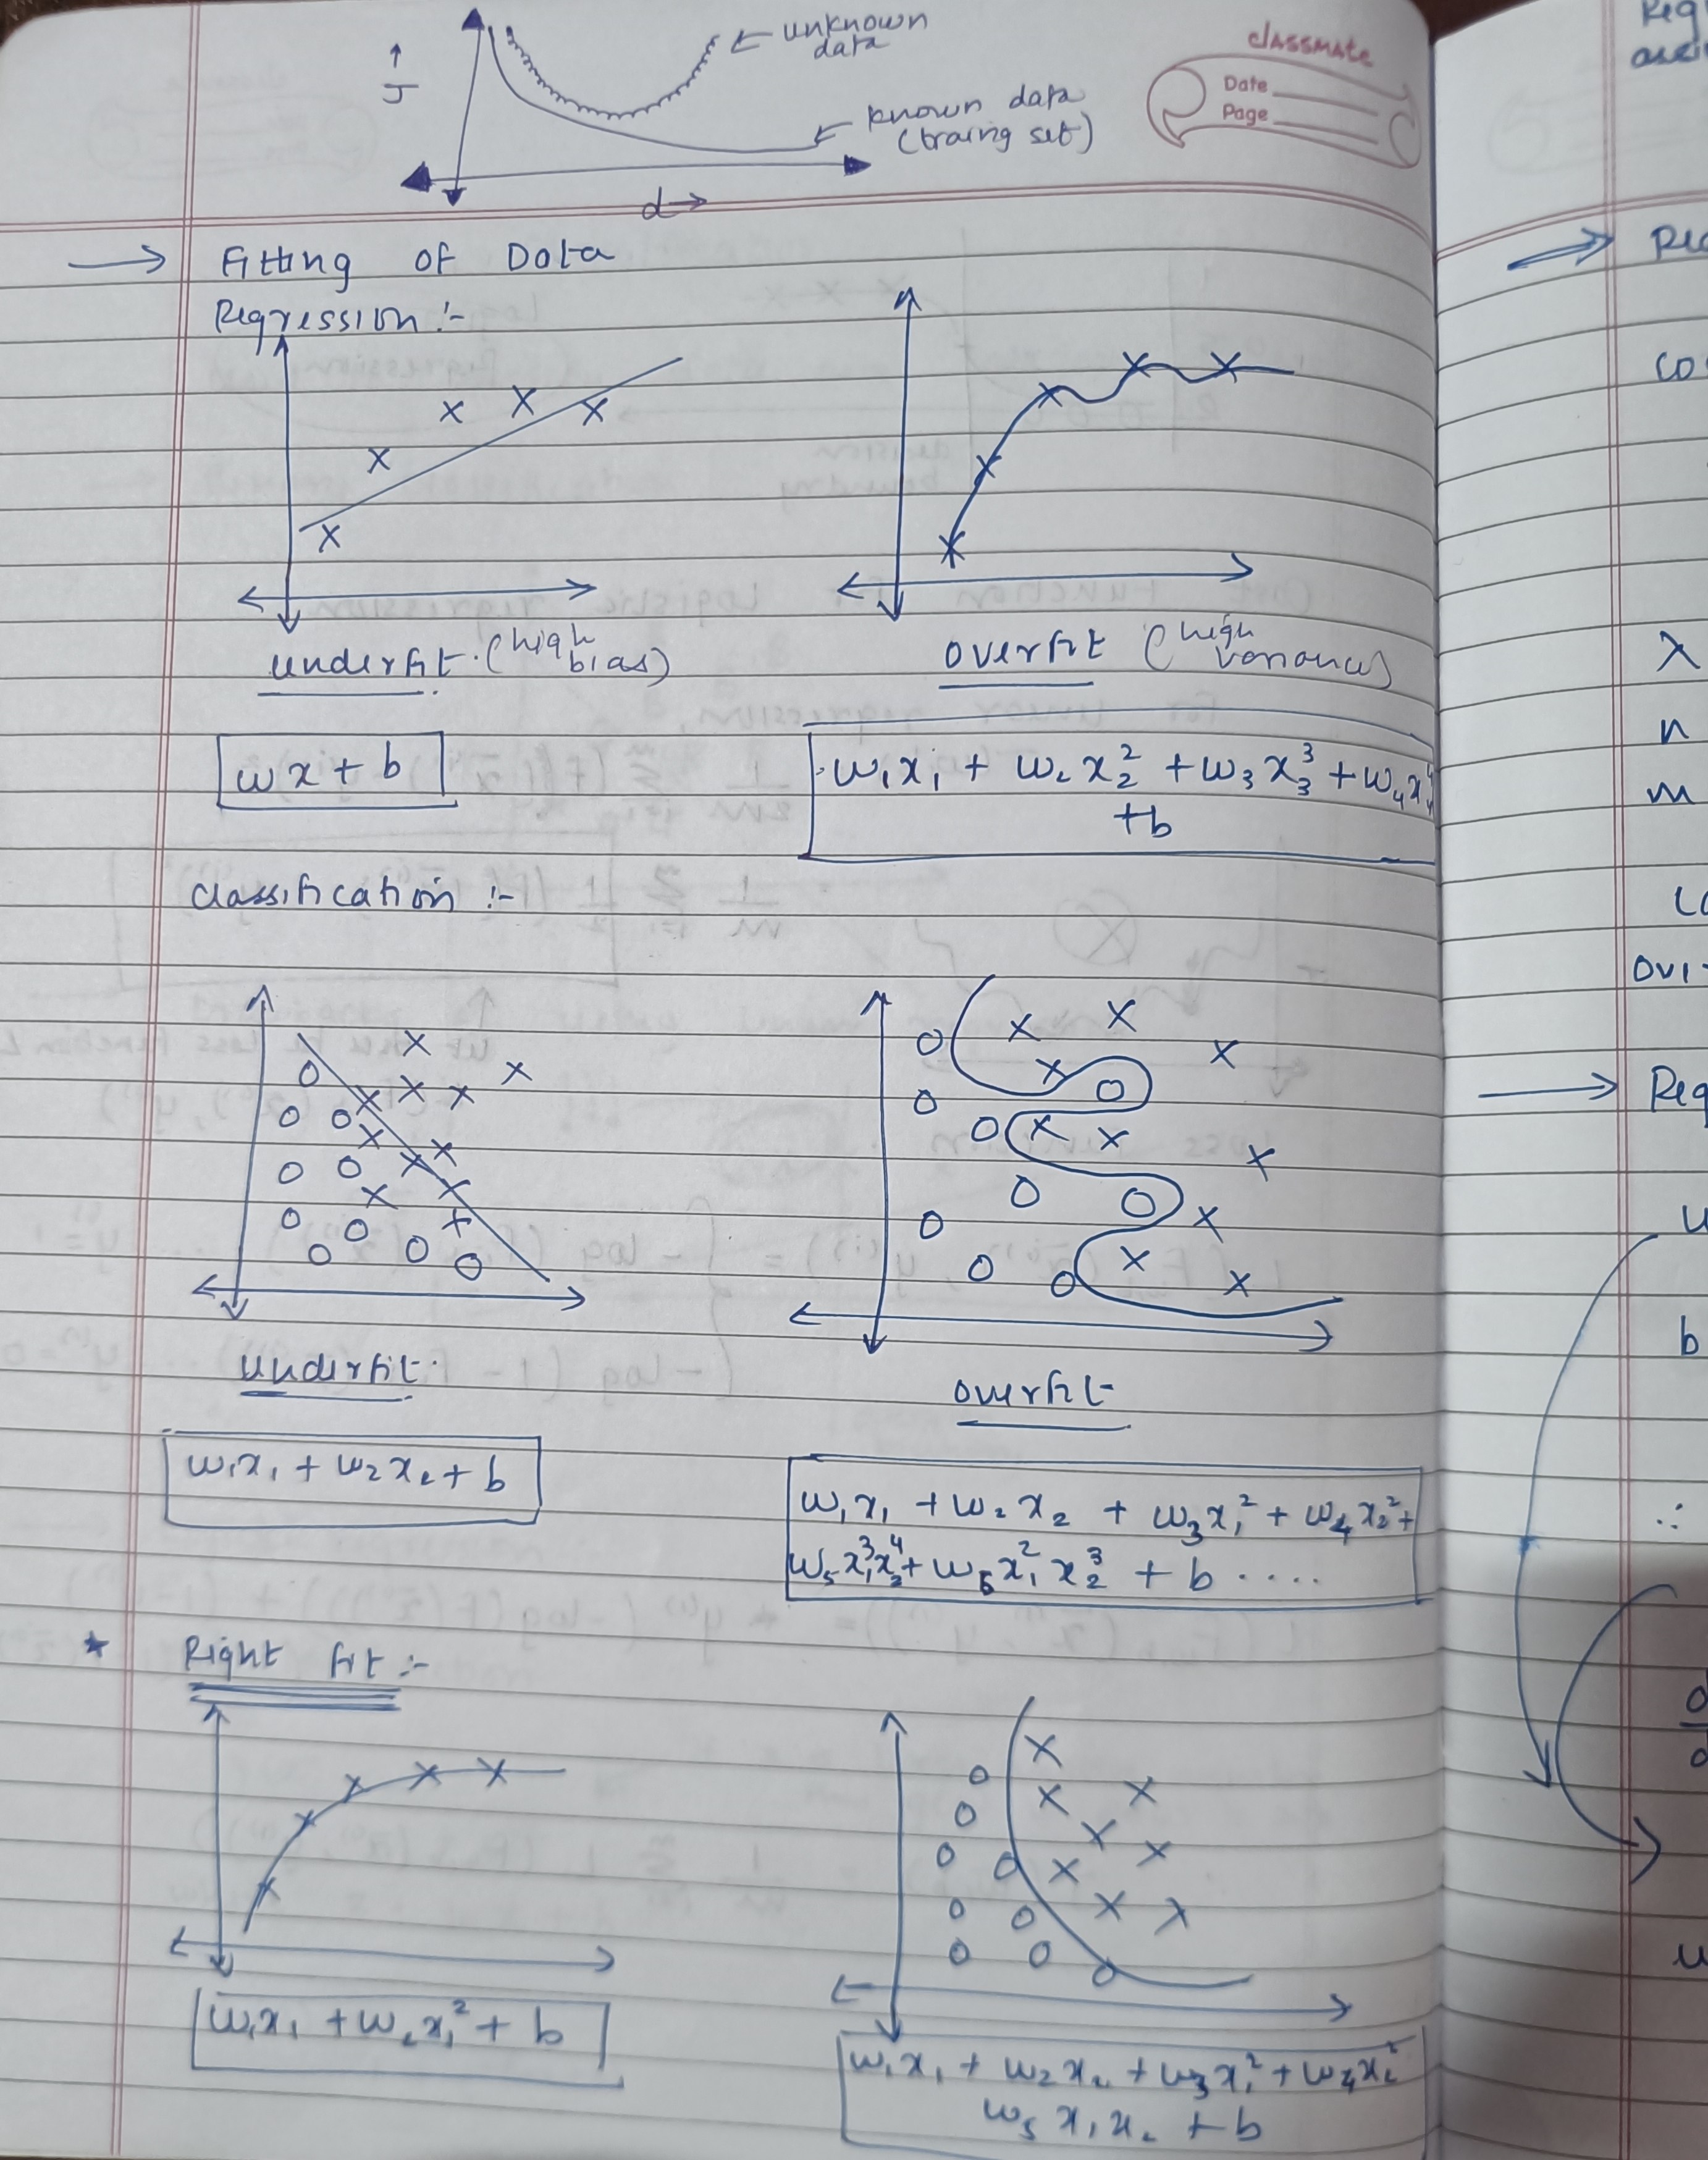 classmate
Date
Page
↑
J
← unknown
data
← known data
(traing set)
d →
→ Fitting of Data
Regression :-
underfit (high bias)
overfit (high variance)
wx + b
w₁x₁ + w₂x₂² + w₃x₃³ + w₄x₄⁴
+b
Classification :-
underfit
overfit
w₁x₁ + w₂x₂ + b
w₁x₁ + w₂x₂ + w₃x₁² + w₄x₂² +
w₅x₁³x₂⁴ + w₆x₁²x₂³ + b ....
* Right fit :-
w₁x₁ + w₂x₁² + b
w₁x₁ + w₂x₂ + w₃x₁² + w₄x₂²
w₅x₁x₂ + b
λ
n
m
b